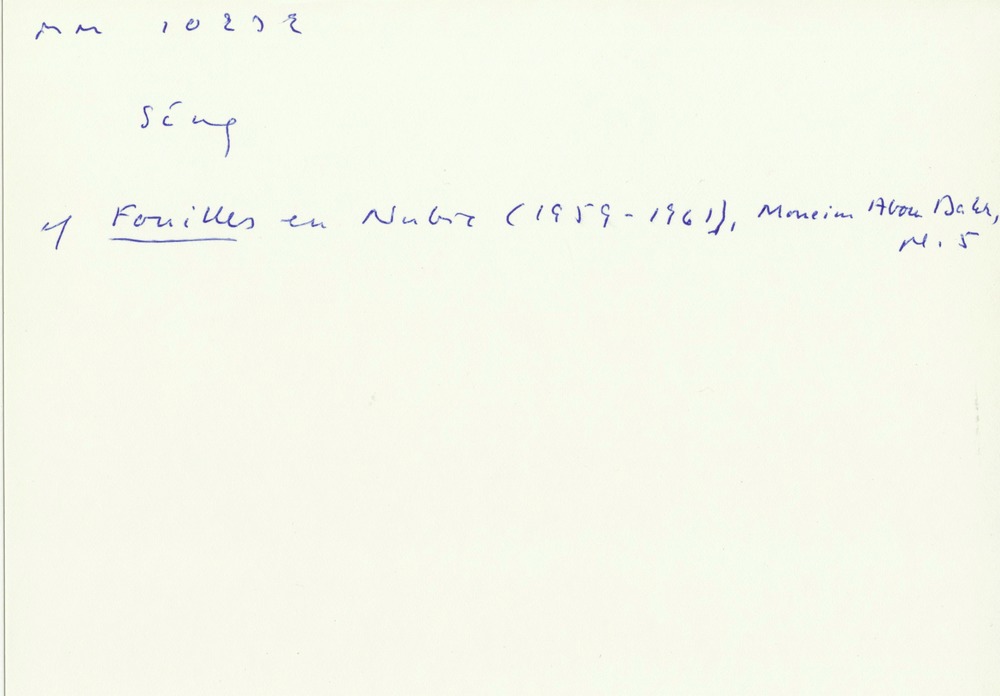 MM 10232
cf Fouilles en Nubie (1959-1961), Moneim Abou Bakr,
Pl. 5